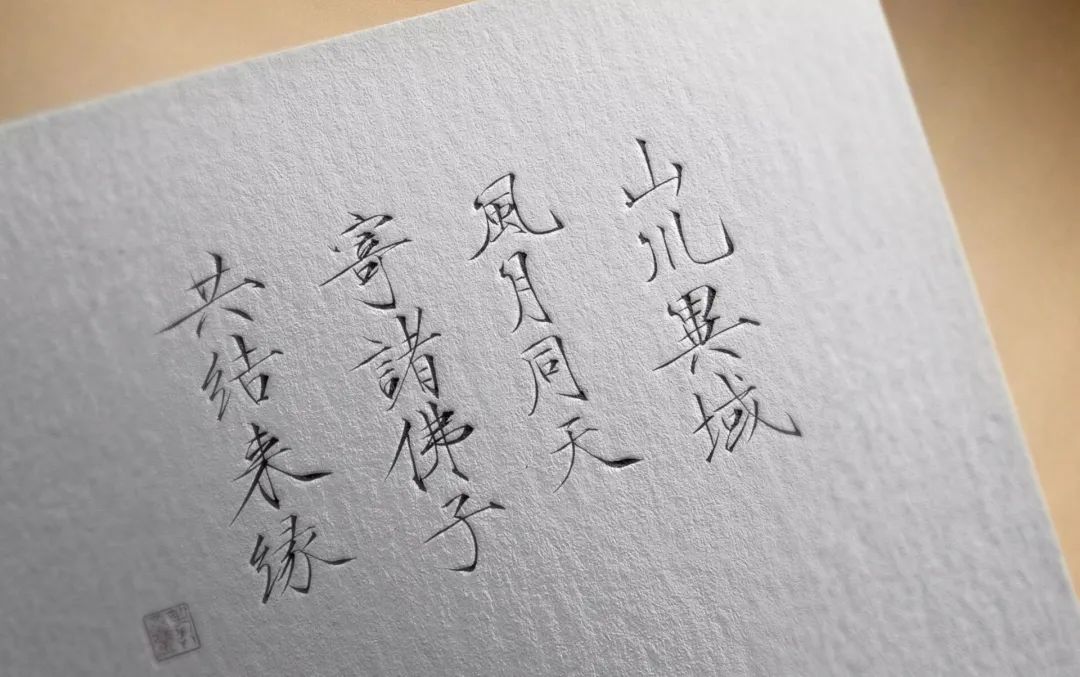 山川異域
風月同天
寄諸佛子
共结来缘